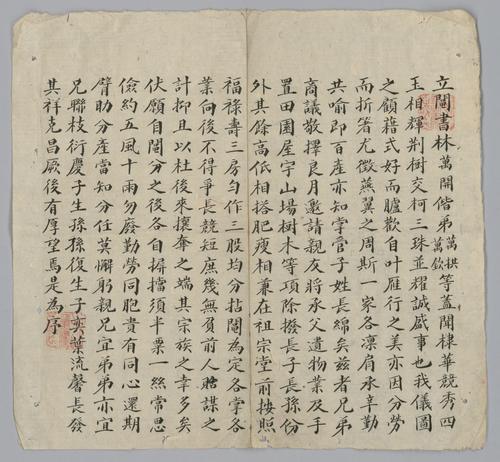 立鬮書林萬開偕弟萬拱萬欽等蓋聞棣華競秀四
玉相輝荆樹交柯三珠並耀誠盛事也我儀圖
之顧藉式好而臚歡自叶雁行之美亦因分勞
而折箸尤徵燕翼之周斯一家各凜肩承辛勤
共喻即百產亦知掌管子姓長綿矣茲者兄弟
商議敬擇良月邀請親友將承父遺物業及手
置田園屋宇山塲樹木等項除撥長子長孫份
外其餘高低相搭肥瘦相兼在祖宗堂前按照
福祿壽三房勻作三股均分拈鬮為定各掌各
業向後不得爭長競短庶幾無負前人貽謀之
計抑且以杜後來攘奪之端其宗族之幸多矣
伏願自鬮分之後各自摒擋須半粟一絲常思
儉約五風十雨勿廢勤勞同胞貴有同心還期
臂助分產當知分任莫懈躬親兄宜弟弟亦宜
兄聯枝衍慶子生孫孫復生子奕葉流馨長發
其祥克昌厥後有厚望焉是為序